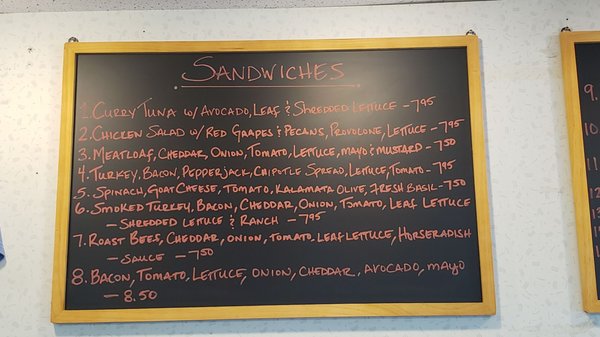 SANDWICHES
1. CURRY TUNA W/ AVOCADO, LEAF & SHREDDED LETTUCE - 7.95
2. CHICKEN SALAD W/ RED GRAPES & PECANS, PROVOLONE, LETTUCE - 7.95
3. MEATLOAF, CHEDDAR, ONION, TOMATO, LETTUCE, MAYO & MUSTARD - 7.50
4. TURKEY, BACON, PEPPERJACK, CHIPOTLE SPREAD, LETTUCE, TOMATO - 7.95
5. SPINACH, GOAT CHEESE, TOMATO, KALAMATA OLIVE, FRESH BASIL - 7.50
6. SMOKED TURKEY, BACON, CHEDDAR, ONION, TOMATO, LEAF LETTUCE
- SHREDDED LETTUCE & RANCH - 7.95
7. ROAST BEEF, CHEDDAR, ONION, TOMATO, LEAF LETTUCE, HORSERADISH
- SAUCE - 7.50
8. BACON, TOMATO, LETTUCE, ONION, CHEDDAR, AVOCADO, MAYO
- 8.50
9.
10
11
12